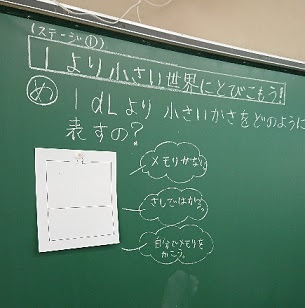 (ステージ①)
1より小さい世界にとびこもう!
め 1dLより小さいかさをどのように
表すの?
メモリがない。
さしではかる。
自分でメモリを
かこう。